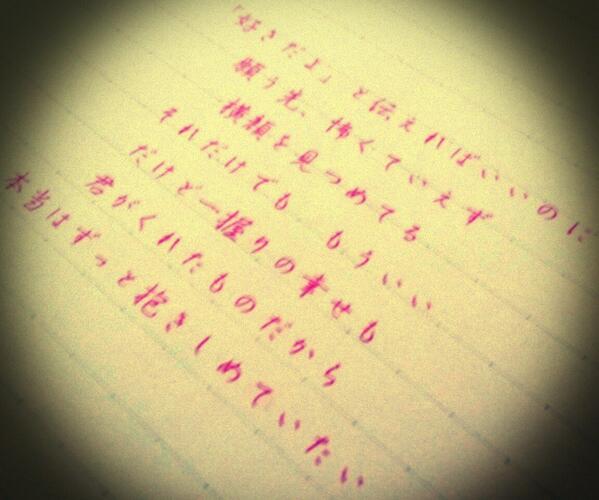 「好きだよ」と伝えればいいのに
願う先、怖くていえず
横顔を見つめてる
それだけでも もういい
だけど一握りの幸せも
君がくれたものだから
本当はずっと抱きしめていたい